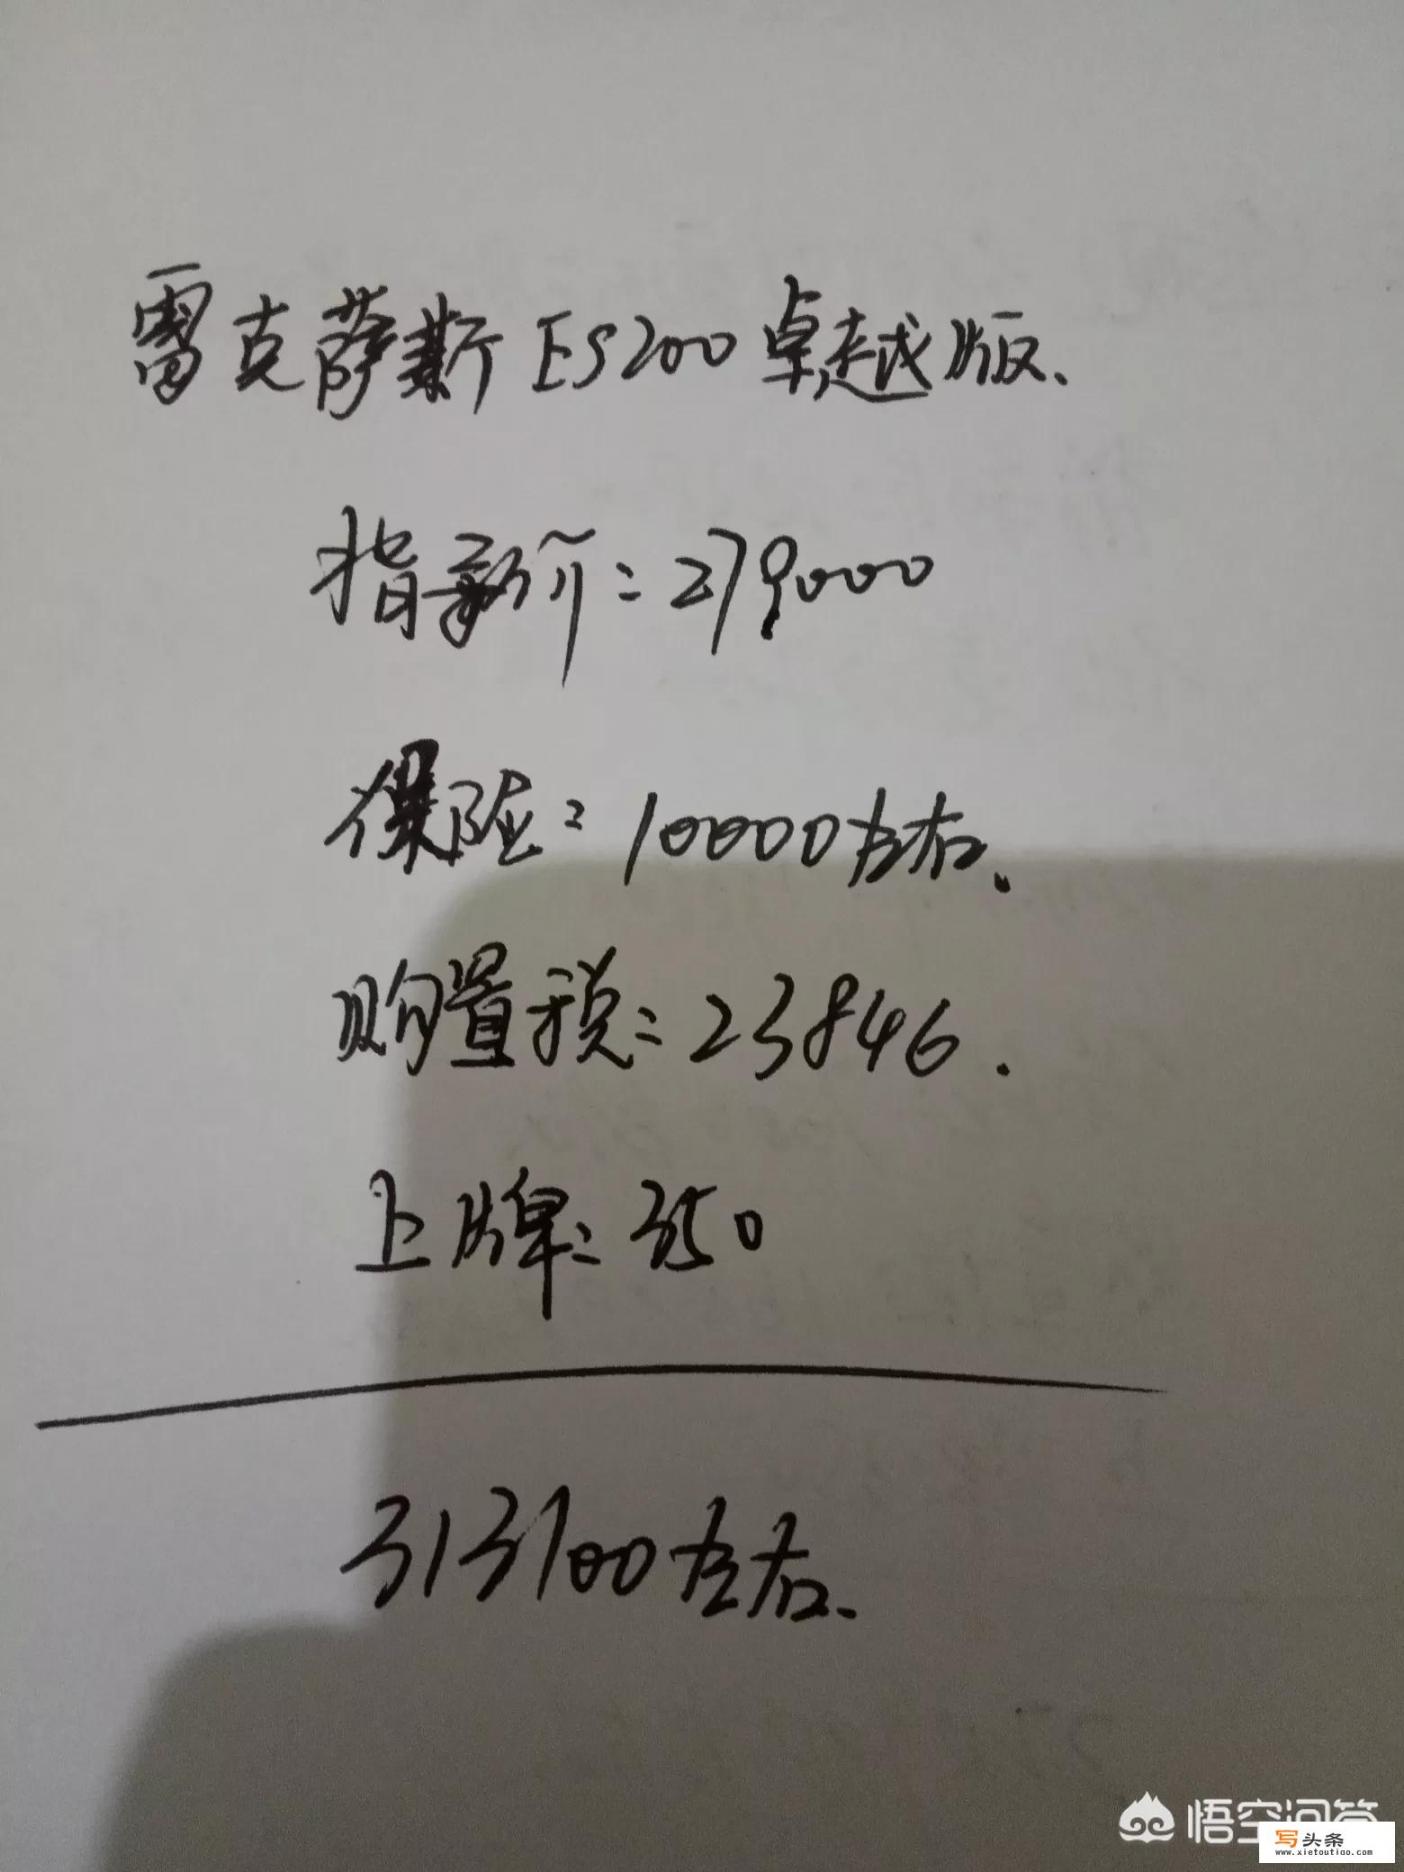 雷克萨斯ES200卓越版、
指导价：279000
保险：10000左右、
购置税：23846.
上牌：350
313100左右、
悟空问答
写头条
www.xietoutiao.com